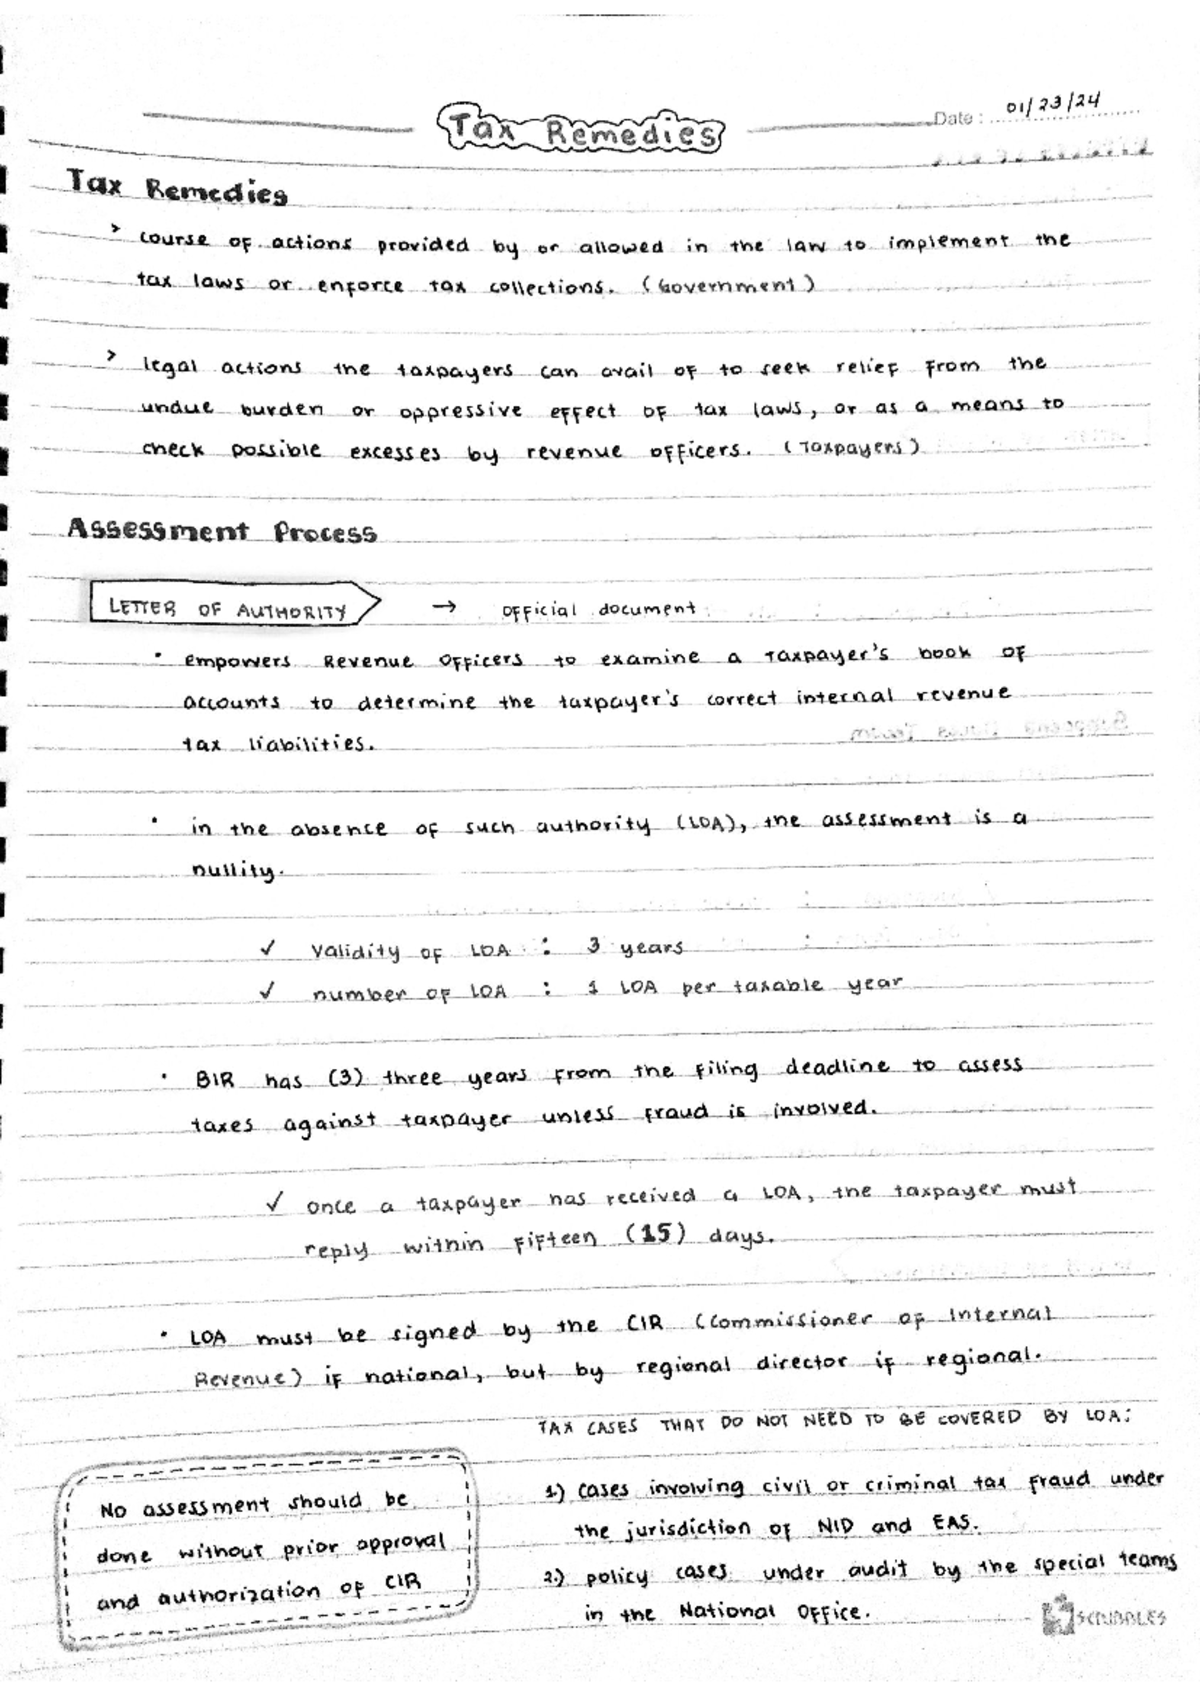 Tax Remedies
Date : 01/23/24
Tax Remedies
> course of actions provided by or allowed in the law to implement the
tax laws or enforce tax collections. (Government)
> legal actions the taxpayers can avail of to seek relief from the
undue burden or oppressive effect of tax laws, or as a means to
check possible excesses by revenue officers. (Taxpayers)
Assessment Process
LETTER OF AUTHORITY → official document
• empowers Revenue Officers to examine a Taxpayer's book of
accounts to determine the taxpayer's correct internal revenue
tax liabilities.
• in the absence of such authority (LOA), the assessment is a
nullity.
✓ validity of LOA : 3 years
✓ number of LOA : 1 LOA per taxable year
• BIR has (3) three years from the filing deadline to assess
taxes against taxpayer unless fraud is involved.
✓ once a taxpayer has received a LOA, the taxpayer must
reply within fifteen (15) days.
• LOA must be signed by the CIR (Commissioner of Internal
Revenue) if national, but by regional director if regional.
TAX CASES THAT DO NOT NEED TO BE COVERED BY LOA:
1.) cases involving civil or criminal tax fraud under
the jurisdiction of NID and EAS.
2.) policy cases under audit by the special teams
in the National Office.
No assessment should be
done without prior approval
and authorization of CIR
SCRIBBLES